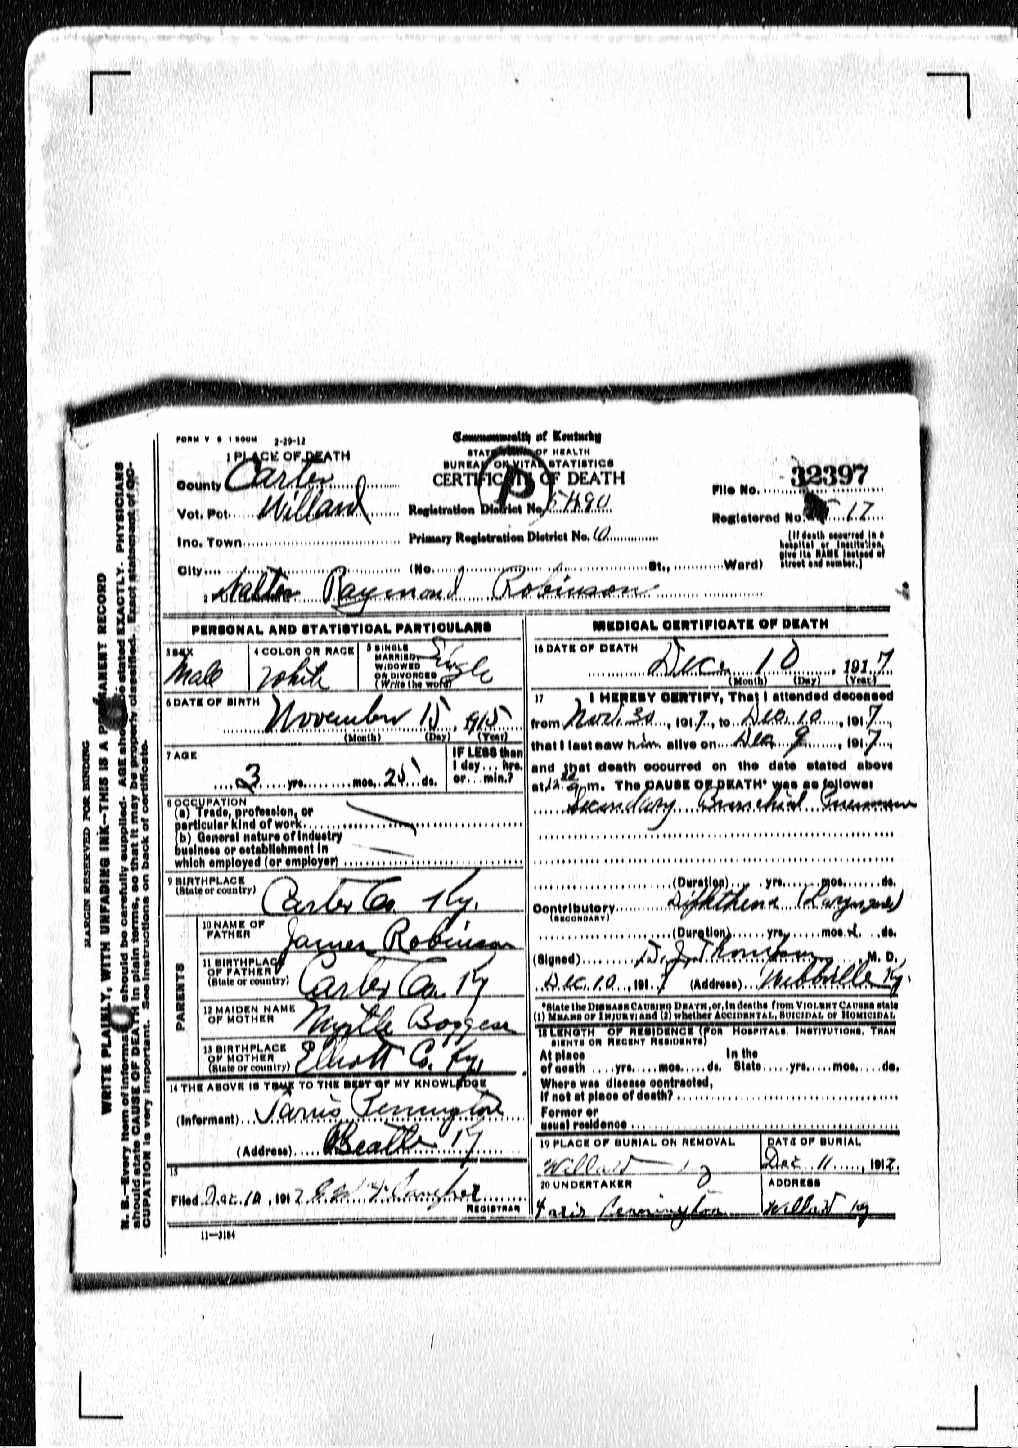 FORM V S 1 500M 2-29-12
Commonwealth of Kentucky
STATE BOARD OF HEALTH
BUREAU OF VITAL STATISTICS
CERTIFICATE OF DEATH
1 PLACE OF DEATH
County Carter
Vot. Pct. Willard
Inc. Town
City (No. St., Ward)
Registration District No.
Primary Registration District No.
File No. 32397
Registered No. 17
(If death occurred in a hospital or institution, give its NAME instead of street and number.)
2 Walter Raymond Robinson
PERSONAL AND STATISTICAL PARTICULARS
3 SEX Male
4 COLOR OR RACE White
5 SINGLE MARRIED WIDOWED OR DIVORCED (Write the word) Single
6 DATE OF BIRTH November 15, 1915
(Month) (Day) (Year)
7 AGE 3 yrs. mos. 25 ds.
IF LESS than 1 day ... hrs. or ... min.?
8 OCCUPATION
(a) Trade, profession, or
particular kind of work
(b) General nature of industry
business or establishment in
which employed (or employer)
9 BIRTHPLACE (State or country) Carter Co. Ky.
PARENTS
10 NAME OF FATHER James Robinson
11 BIRTHPLACE OF FATHER (State or country) Carter Co. Ky
12 MAIDEN NAME OF MOTHER Myrtle Boggess
13 BIRTHPLACE OF MOTHER (State or country) Elliott Co. Ky.
14 THE ABOVE IS TRUE TO THE BEST OF MY KNOWLEDGE
(Informant) Pennington
(Address) Ky
15
Filed Dec. 10, 1917
REGISTRAR
11-3184
MEDICAL CERTIFICATE OF DEATH
16 DATE OF DEATH Dec. 10, 1917
(Month) (Day) (Year)
17 I HEREBY CERTIFY, That I attended deceased
from Nov. 30, 1917, to Dec. 10, 1917,
that I last saw him alive on Dec. 9, 1917,
and that death occurred on the date stated above
at 12 a m. The CAUSE OF DEATH* was as follows:
Secondary Bronchial Pneumonia
(Duration) yrs. mos. ds.
Contributory (SECONDARY) Diphtheria (Laryngeal)
(Duration) yrs. mos. ds.
(Signed) D. J. Thompson M. D.
Dec. 10, 1917 (Address) Webbville Ky.
*State the DISEASE CAUSING DEATH, or, in deaths from VIOLENT CAUSES state
(1) MEANS OF INJURY; and (2) whether ACCIDENTAL, SUICIDAL or HOMICIDAL
18 LENGTH OF RESIDENCE (FOR HOSPITALS, INSTITUTIONS, TRANSIENTS OR RECENT RESIDENTS)
At place of death yrs. mos. ds. In the State yrs. mos. ds.
Where was disease contracted,
if not at place of death?
Former or
usual residence
19 PLACE OF BURIAL OR REMOVAL Willard Ky
DATE OF BURIAL Dec 11, 1917.
20 UNDERTAKER Pennington
ADDRESS Willard Ky
MARGIN RESERVED FOR BINDING
WRITE PLAINLY, WITH UNFADING INK—THIS IS A PERMANENT RECORD
N. B.—Every item of information should be carefully supplied. AGE should be stated EXACTLY. PHYSICIANS
should state CAUSE OF DEATH in plain terms, so that it may be properly classified. Exact statement of OC-
CUPATION is very important. See instructions on back of certificate.